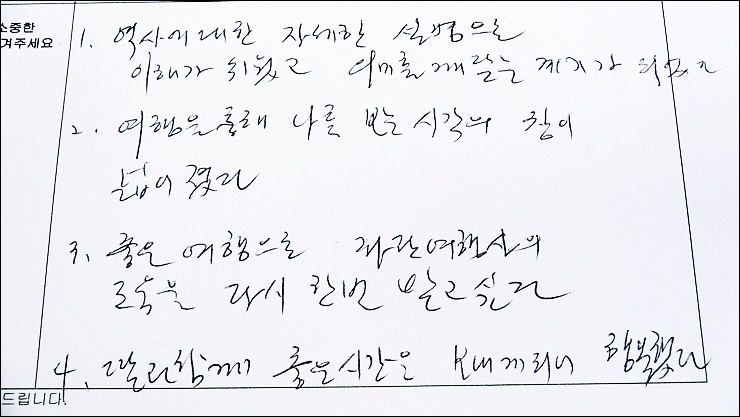 소중한
겨주세요
1. 역사에 대한 자세한 설명으로
이해가 쉬웠고 의미를 깨닫는 계기가 되었고
2. 여행을 통해 나를 보는 시각의 창이
넓어졌다
3. 좋은 여행으로 여행사의
도움을 다시 한번 받고 싶다
4. 딸과 함께 좋은 시간은 보내게 되어 행복했다
드립니다.